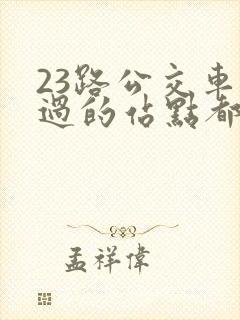 23路公交車
過的佔點都
孟祥偉